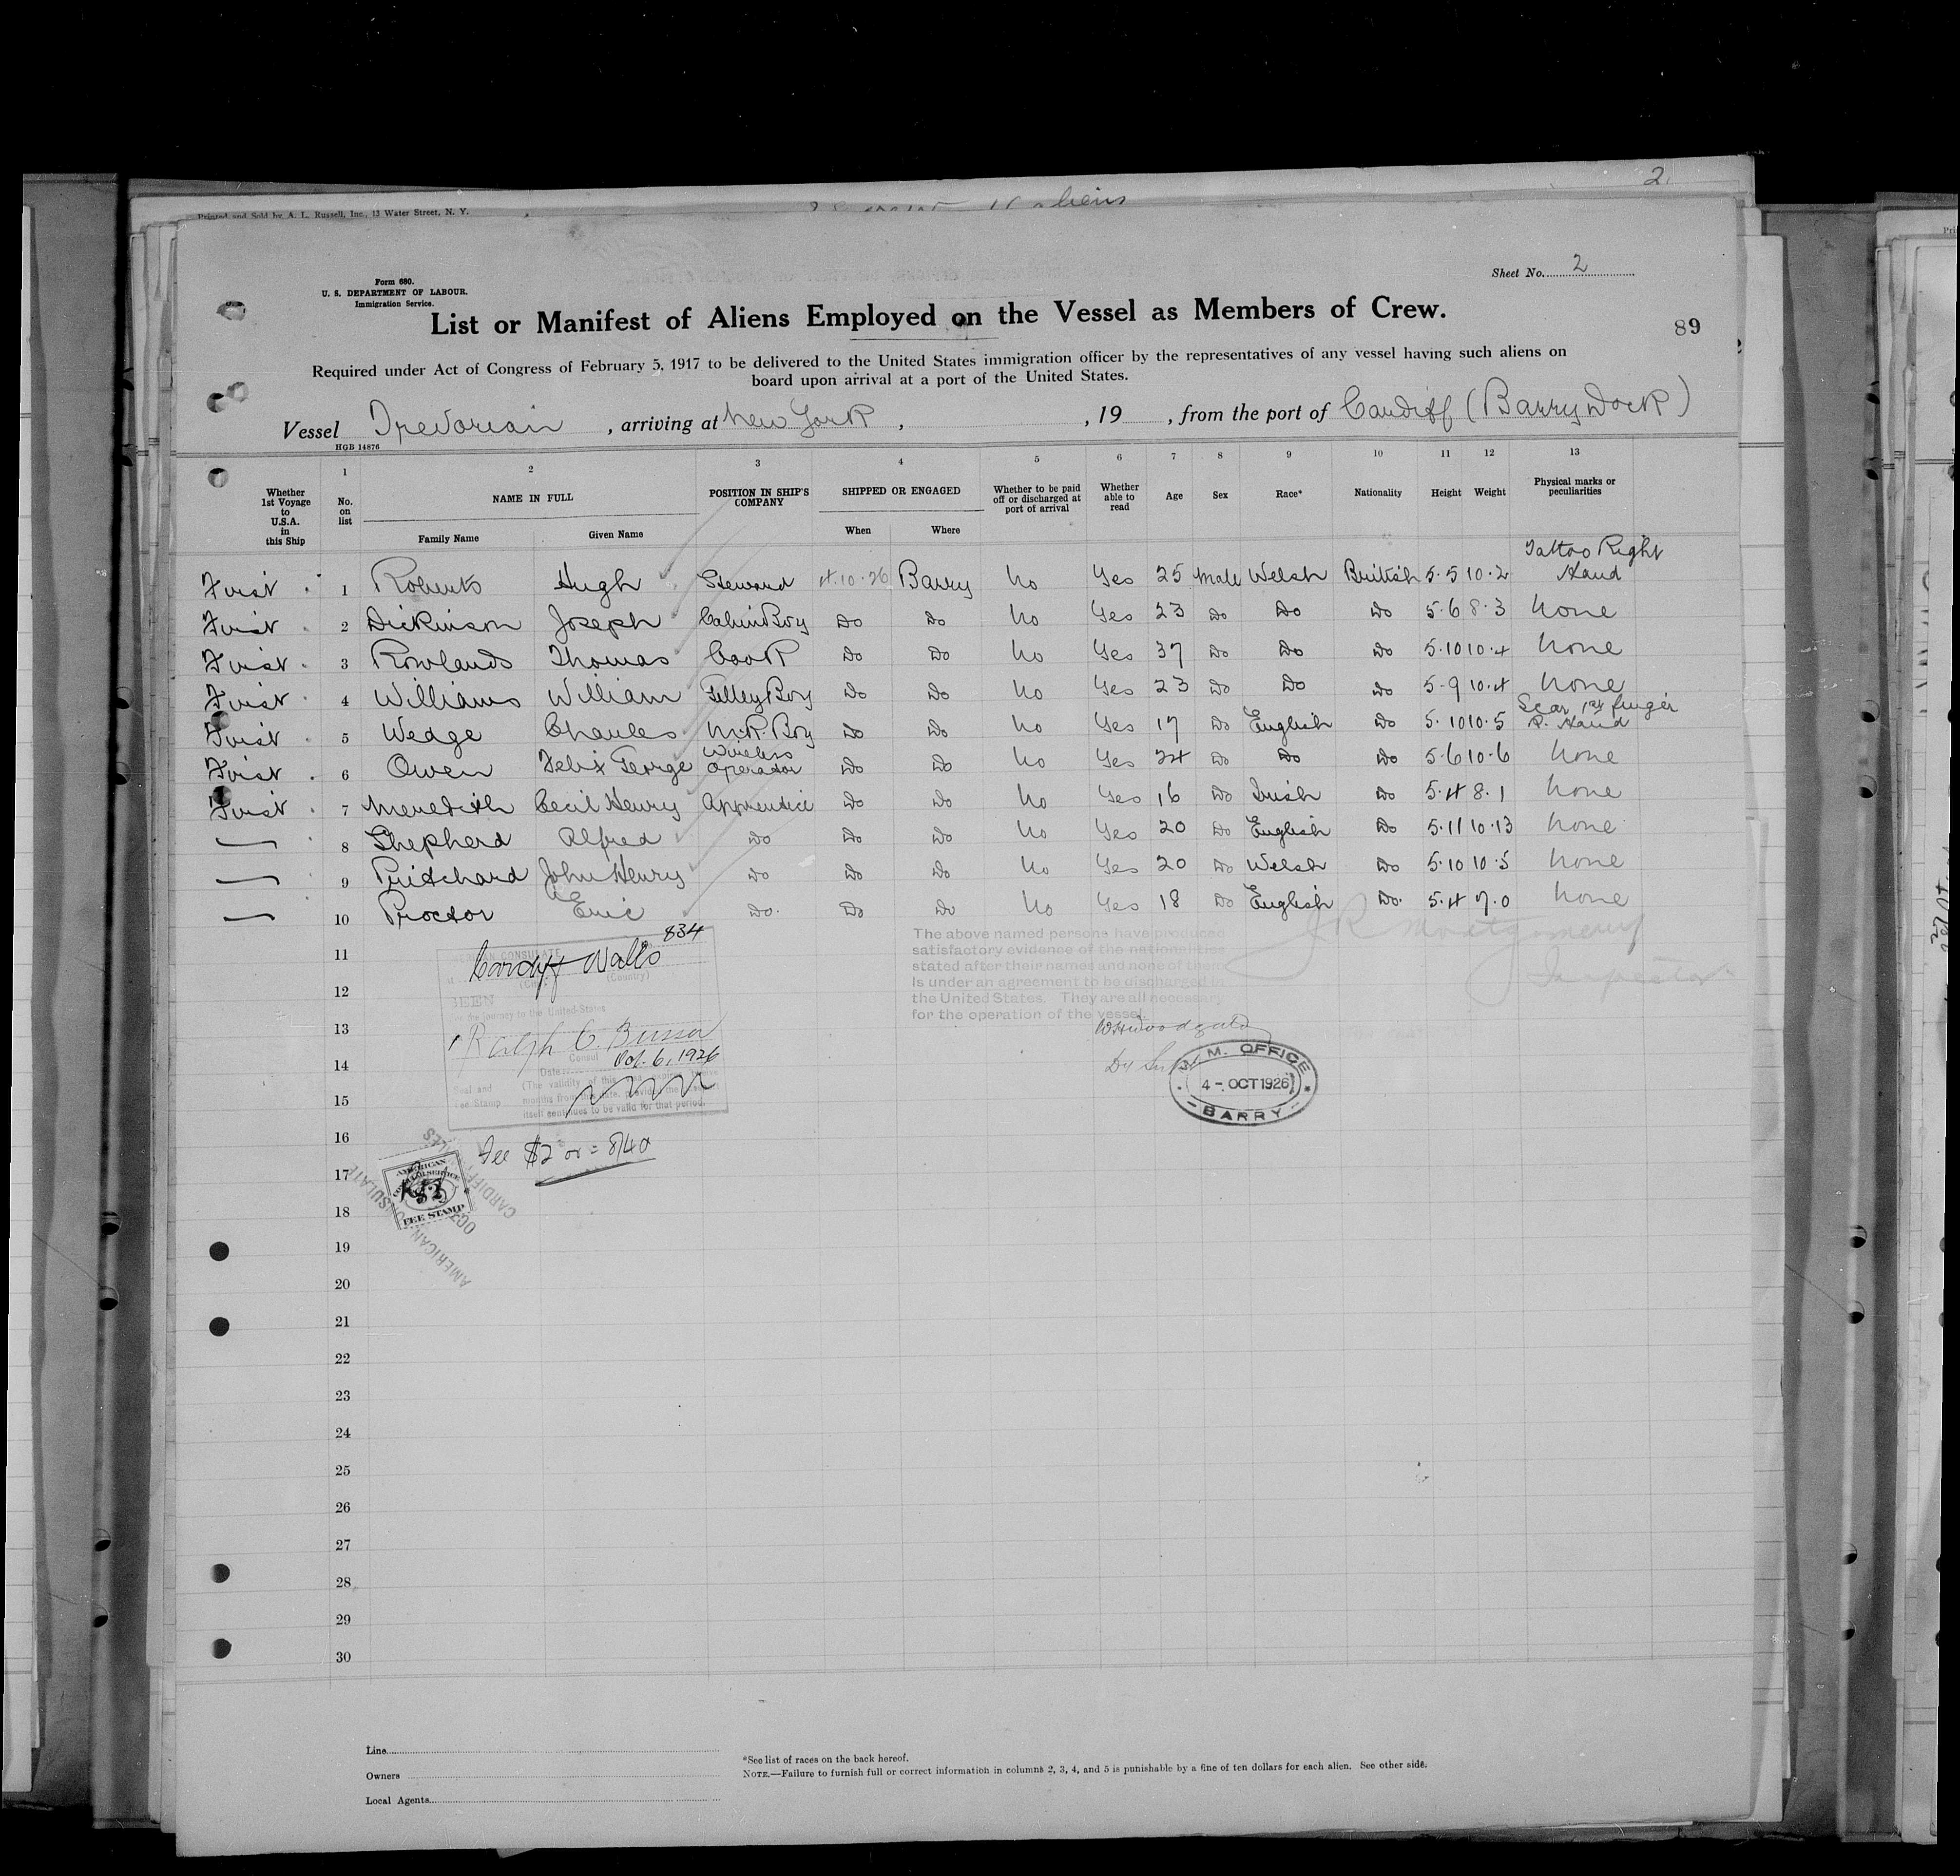 2
Printed and Sold by A. L. Russell, Inc., 13 Water Street, N. Y.
aliens
Sheet No. 2
Form 680.
U. S. DEPARTMENT OF LABOUR.
Immigration Service.
List or Manifest of Aliens Employed on the Vessel as Members of Crew.
89
Required under Act of Congress of February 5, 1917 to be delivered to the United States immigration officer by the representatives of any vessel having such aliens on
board upon arrival at a port of the United States.
Vessel Trevorian, arriving at New York, , 19 , from the port of Cardiff (Barry Dock)
HGB 14876
1 2 3 4 5 6 7 8 9 10 11 12 13
Whether 1st Voyage to U.S.A. in this Ship No. on list NAME IN FULL Family Name Given Name POSITION IN SHIP'S COMPANY SHIPPED OR ENGAGED When Where Whether to be paid off or discharged at port of arrival Whether able to read Age Sex Race* Nationality Height Weight Physical marks or peculiarities
First 1 Roberts Hugh Steward 4.10.26 Barry No Yes 25 Male Welsh British 5.5 10.2 Tattoo Right Hand
First 2 Dickinson Joseph Cabin Boy Do Do No Yes 23 Do Do Do 5.6 8.3 None
First 3 Rowlands Thomas Cook Do Do No Yes 37 Do Do Do 5.10 10.4 None
First 4 Williams William Galley Boy Do Do No Yes 23 Do Do Do 5.9 10.4 None
First 5 Wedge Charles M.R. Boy Do Do No Yes 17 Do English Do 5.10 10.5 Scar 1st finger R. Hand
First 6 Owen Felix George Wireless Operator Do Do No Yes 24 Do Do Do 5.6 10.6 None
First 7 Meredith Cecil Henry Apprentice Do Do No Yes 16 Do Irish Do 5.4 8.1 None
— 8 Shepherd Alfred Do Do Do No Yes 20 Do English Do 5.11 10.13 None
— 9 Pritchard John Henry Do Do Do No Yes 20 Do Welsh Do 5.10 10.5 None
— 10 Proctor Eric Do. Do Do No Yes 18 Do English Do. 5.4 7.0 None
834
CONSULATE
Cardiff Wales
(City) (Country)
SEEN
the journey to the United States
Ralph C. Busser
Consul
Date Oct. 6, 1926
Seal and Fee Stamp
(The validity of this
months from this date, provided the
itself continues to be valid for that period.
Fee $2 or = 8/40
AMERICAN CONSULAR SERVICE
$2
FEE STAMP
AMERICAN CONSULATE
CARDIFF, WALES
OCT
The above named persons have produced
satisfactory evidence of the nationalities
stated after their names and none of
is under an agreement to be discharged in
the United States. They are all necessary
for the operation of the vessel.
J R Montgomery
Inspector
M. M. OFFICE
4 - OCT 1926
BARRY
11
12
13
14
15
16
17
18
19
20
21
22
23
24
25
26
27
28
29
30
Line
Owners
Local Agents
*See list of races on the back hereof.
NOTE.—Failure to furnish full or correct information in columns 2, 3, 4, and 5 is punishable by a fine of ten dollars for each alien. See other side.